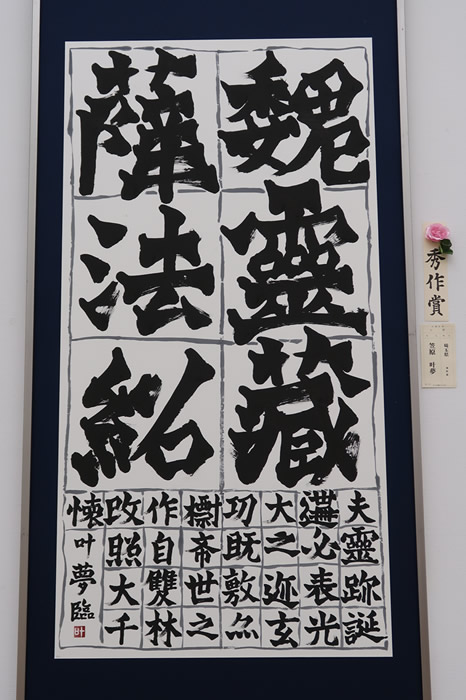 魏靈藏
薛法紹
夫靈跡誕
遘必表光
大之迹玄
功既敷亦
標希世之
作自雙林
改照大千
懷
叶夢臨
叶
秀作賞
笠原 叶夢